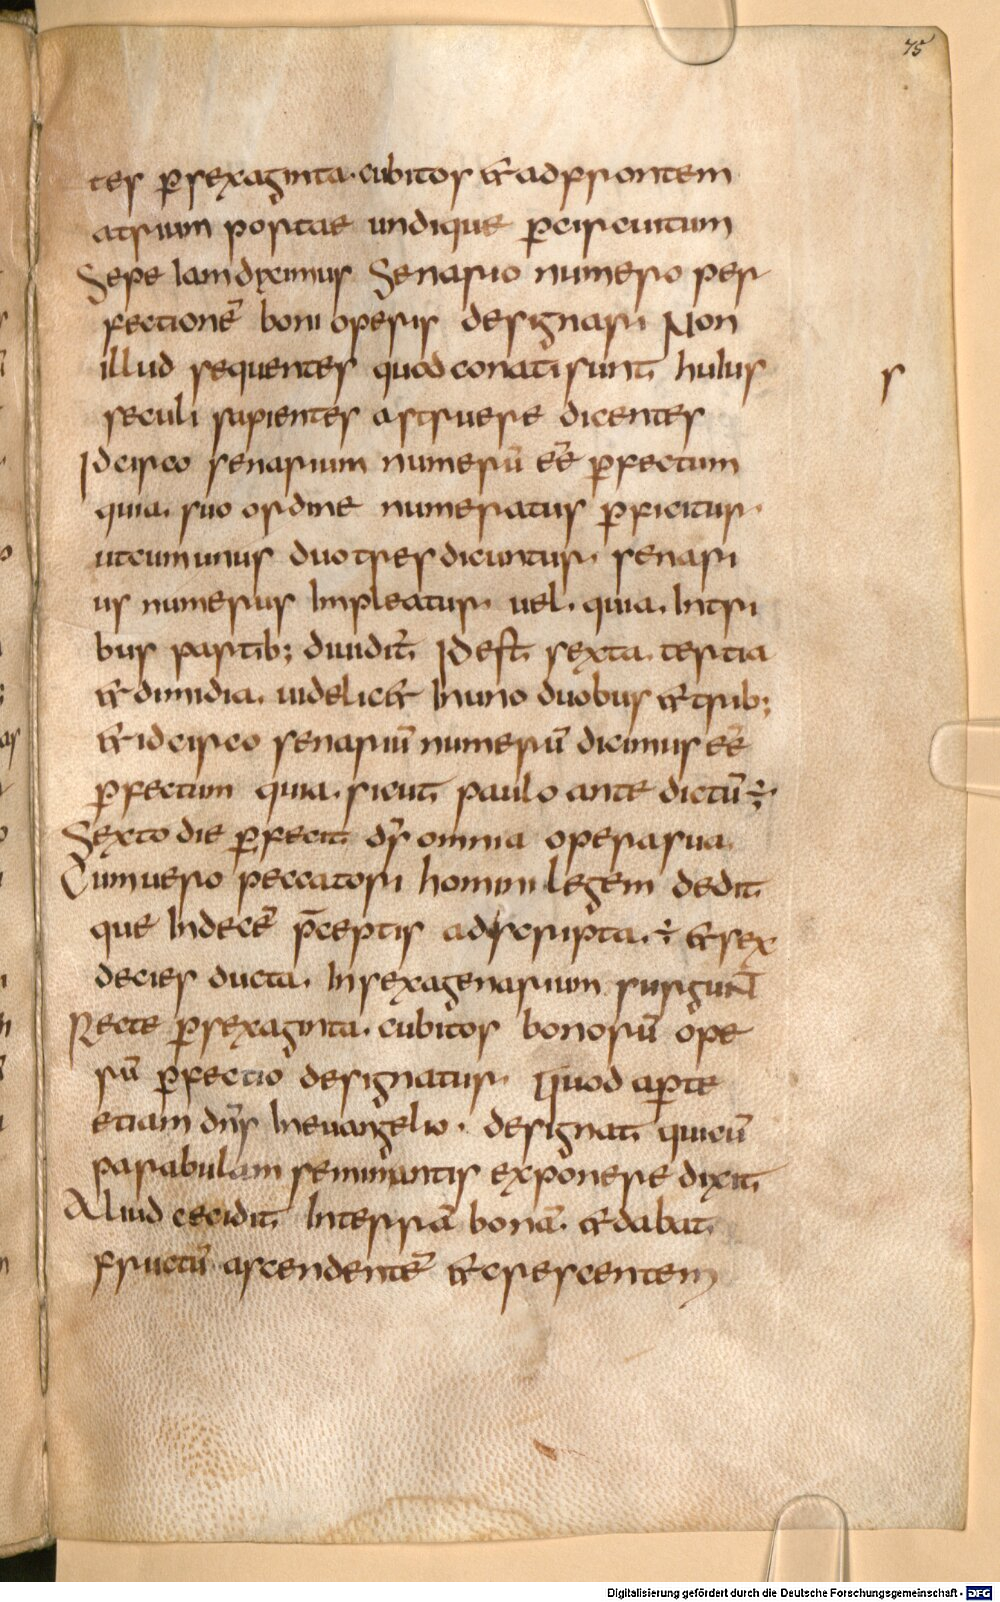 75
tes p̄sexaginta. cubitos et adfrontem
atrium portae undique p̄circuitum
Sepe Iam diximus Senario numero per
fectionē boni operis designari Non
illud sequentes quod conati sunt huius
s
seculi sapientes astruere dicentes
Idcirco senarium numerū eē p̄fectum
quia. suo ordine numeratus p̄ficitur.
ut cum unus duo tres dicuntur. senari
us numerus Impleatur. uel. quia. Intri
bus partib; diuidit̄ Id est sexta. tertia
et dimidia. uidelicet In uno duobus et trib;
et idcirco senariū numerū dicimus eē
p̄fectum quia. sicut paulo ante dictū ÷
Sexto die p̄fecit dr̄ omnia opera sua
Cum uero peccatori homini legem dedit
que Indecē p̄ceptis adscripta. ÷ et sex
decies ducta. In sexagenarium surgunt
Recte p̄sexaginta. cubitos bonorū ope
rū p̄fectio designatur Quod ap̄te
etiam dn̄s In euangelio. designat qui cū
parabulam seminantis exponere dixit
Aliud cecidit Interrā bonā. et dabat
fructū ascendentē et crescentem
Digitalisierung gefördert durch die Deutsche Forschungsgemeinschaft - DFG